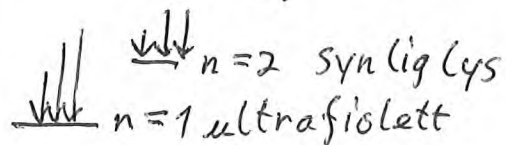 n=2 synlig lys
n=1 ultrafiolett